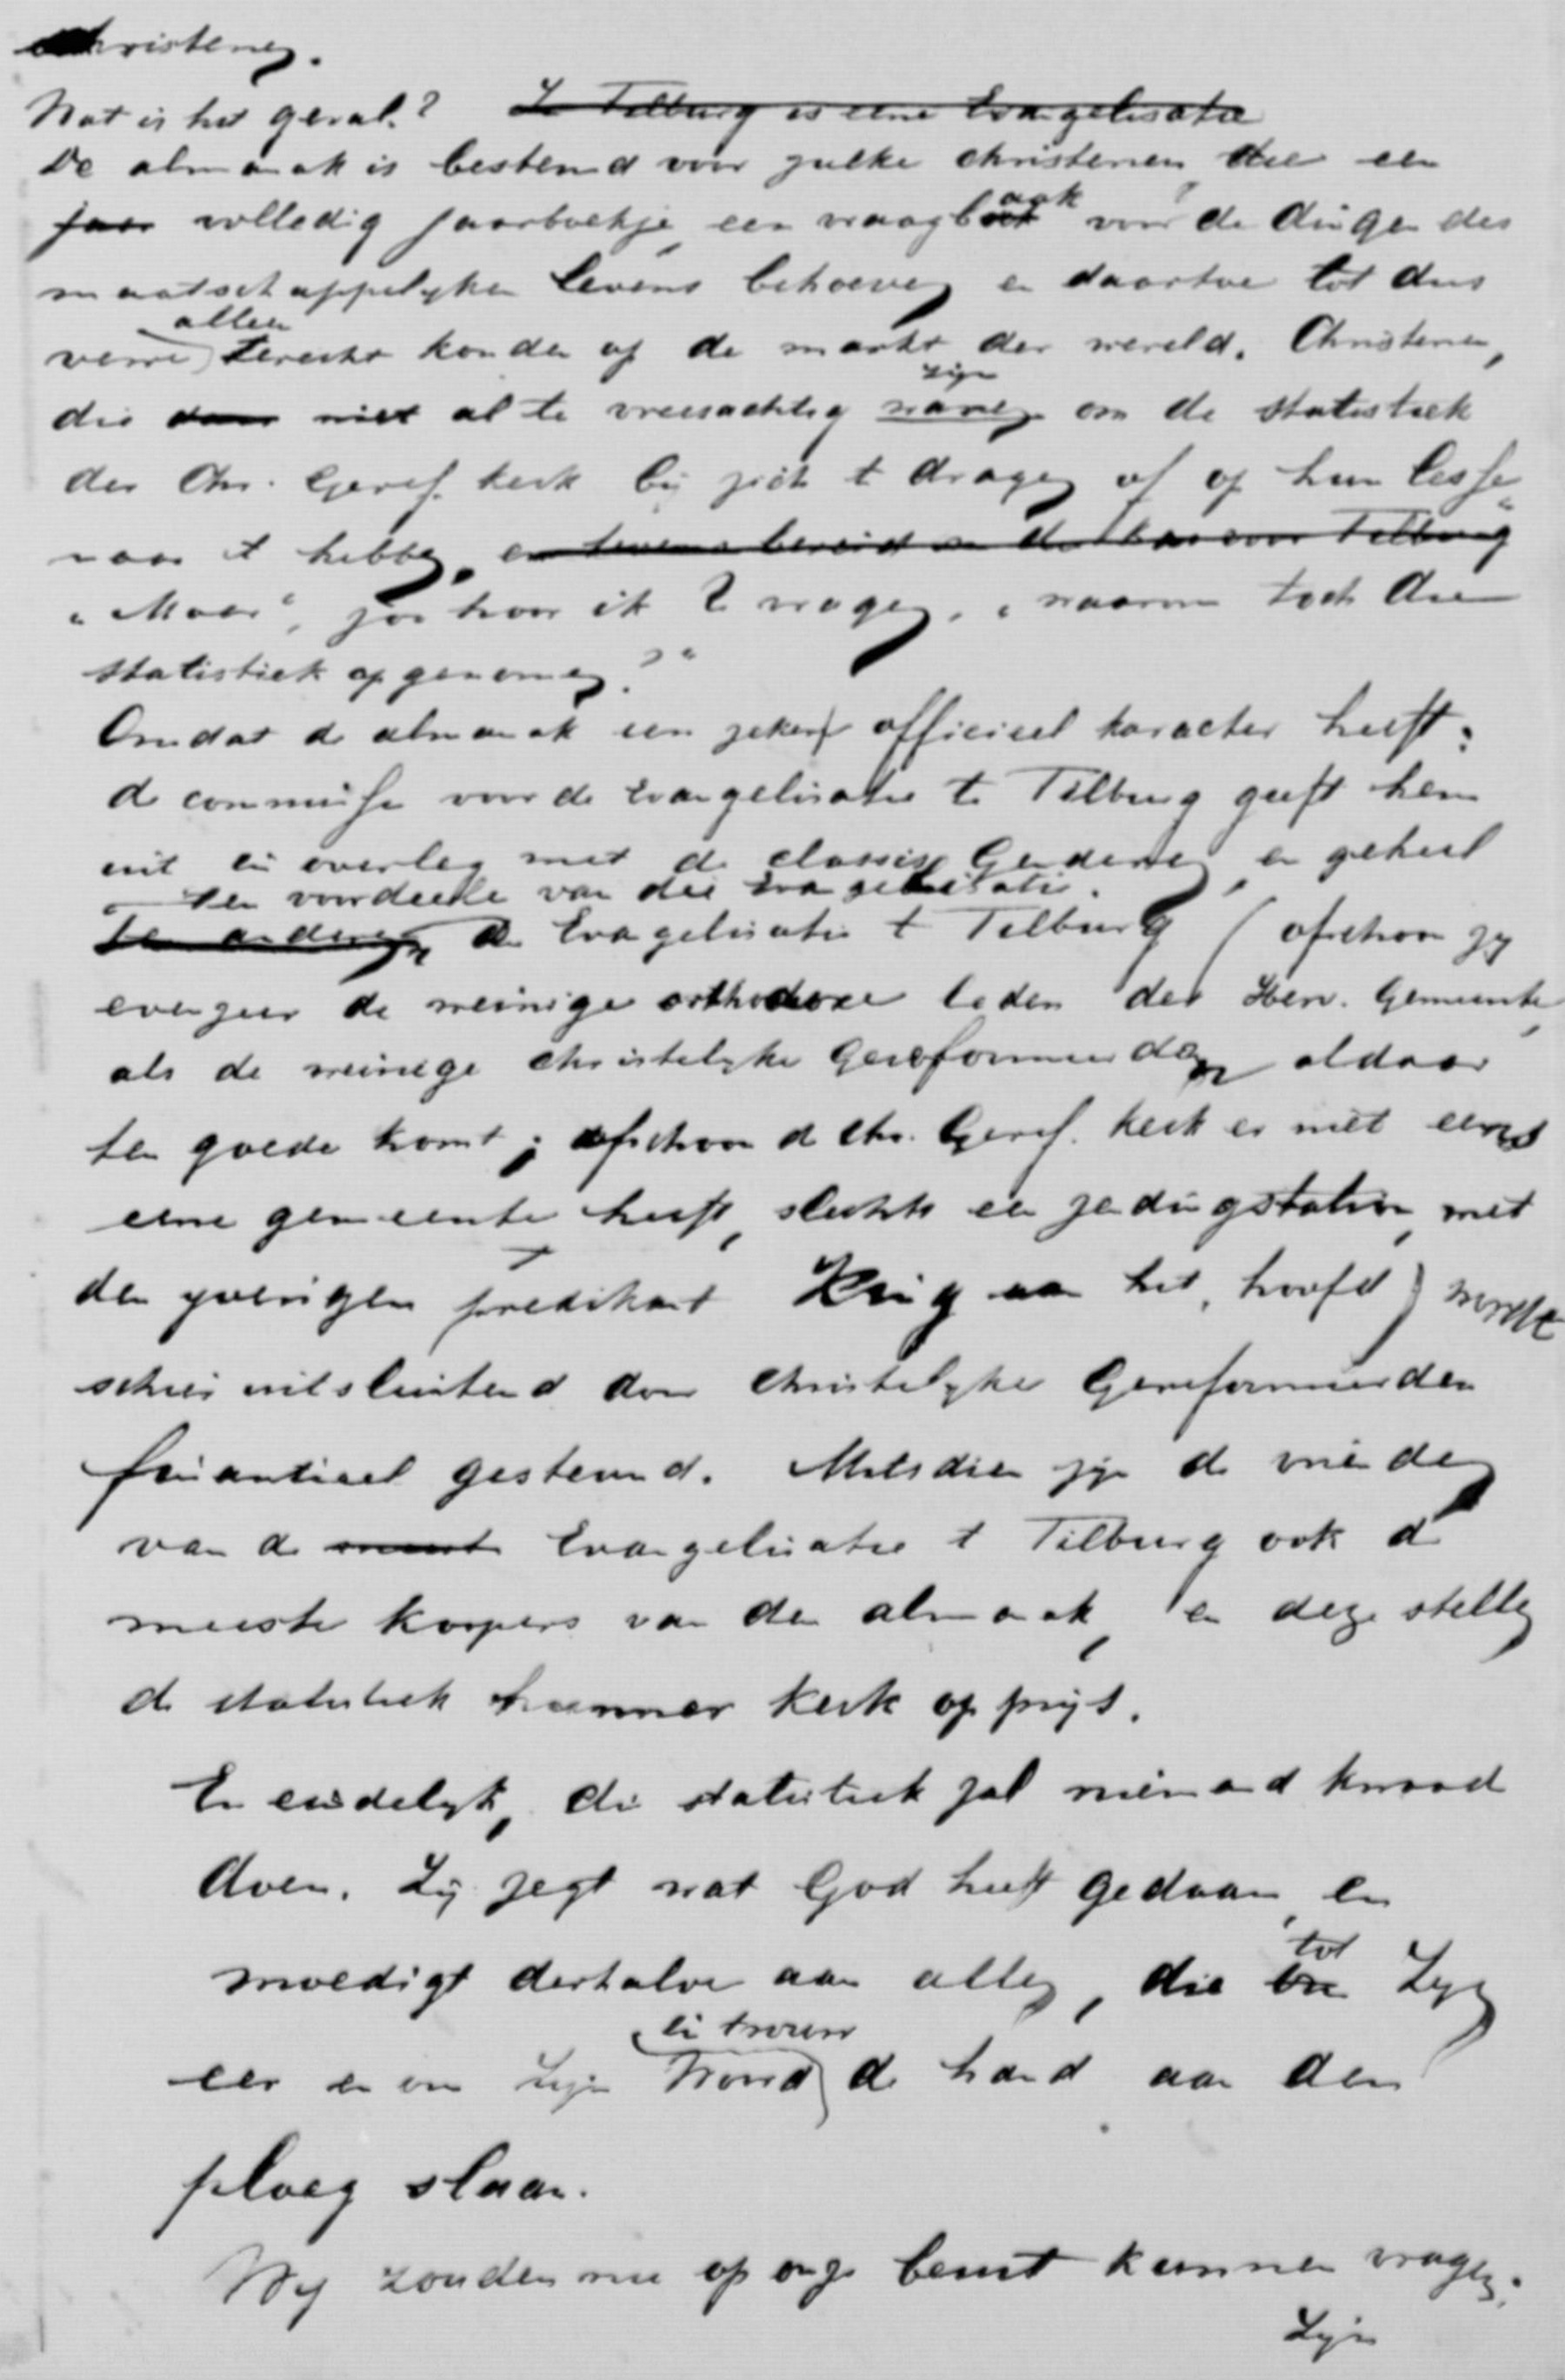 Christenen.
Wat is het geval? In Tilburg is eene Evangelisatie
De almanak is bestemd voor zulke christenen die een
jaar volledig jaarboekje, een vraagbaak voor de dingen des
maatschappelyken levens behoeven en daartoe tot dus
verre alleen terecht konden op de markt der wereld. Christenen,
die daar niet al te vreesachtig waren zijn om de statistiek
der Chr. Geref. kerk bij zich te dragen of op hun lesse-
naar te hebben, en tevens bereid om de kas voor Tilburg
"Maar", zoo hoor ik U vragen, "waarom toch die
statistiek opgenomen?"
Omdat de almanak een zeker officieel karacter heeft:
de commissie voor de Evangelisatie te Tilburg geeft hem
uit in overleg met de classis Genderen, en geheel
ten voordeele van die Evangelisatie.
Ten anderen De Evangelisatie te Tilburg (ofschoon zy
evenzeer de weinige orthodoxe leden der Herv. Gemeente,
als de weinige christelyke Gereformeerden aldaar
ten goede komt; ofschoon de Chr. Geref. kerk er niet eens
eene gemeente heeft, slechts een zendingstation, met
den yverigen predikant Kuig aan het hoofd) wordt
schier uitsluitend door Christelyke Gereformeerden
finantieel gesteund. Mitsdien zijn de vrienden
van de Evangelisatie te Tilburg ook de
meeste koopers van den almanak, en deze stellen
de statistiek hunner kerk op prijs.
En eindelyk, die statistiek zal niemand kwaad
doen. Zij zegt wat God heeft gedaan, en
moedigt derhalve aan allen, die tot Zyn
eer en om Zijn in trouw Woord de hand aan den
ploeg slaan.
Wy zouden nu op onze beurt kunnen vragen:
Zijn